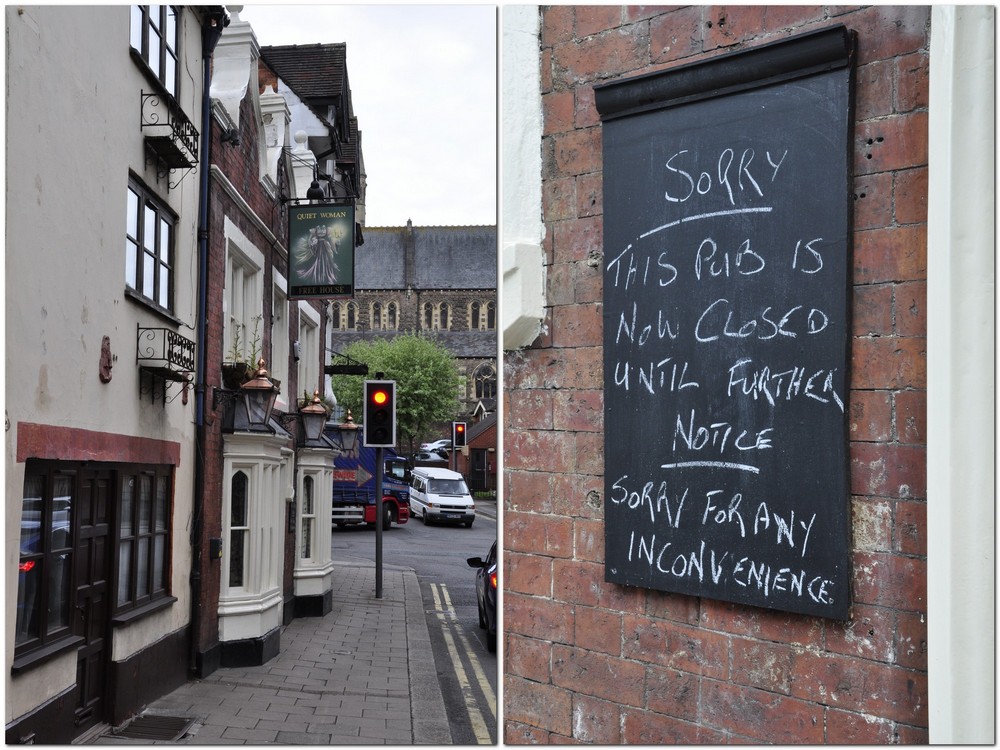 QUIET WOMAN
FREE HOUSE
SORRY
THIS PUB IS
NOW CLOSED
UNTIL FURTHER
NOTICE
SORRY FOR ANY
INCONVENIENCE.